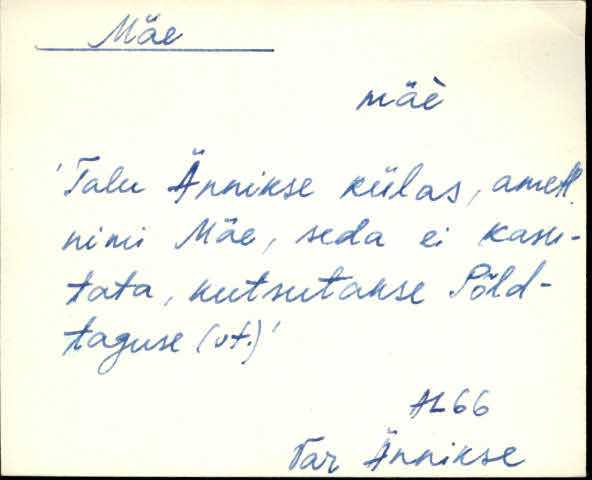 Mäe
mäè
'Talu Ännikse külas, ametl.
nimi Mäe, seda ei kasu-
tata, kutsutakse Põld-
taguse (vt.)'
AL 66
Var Ännikse